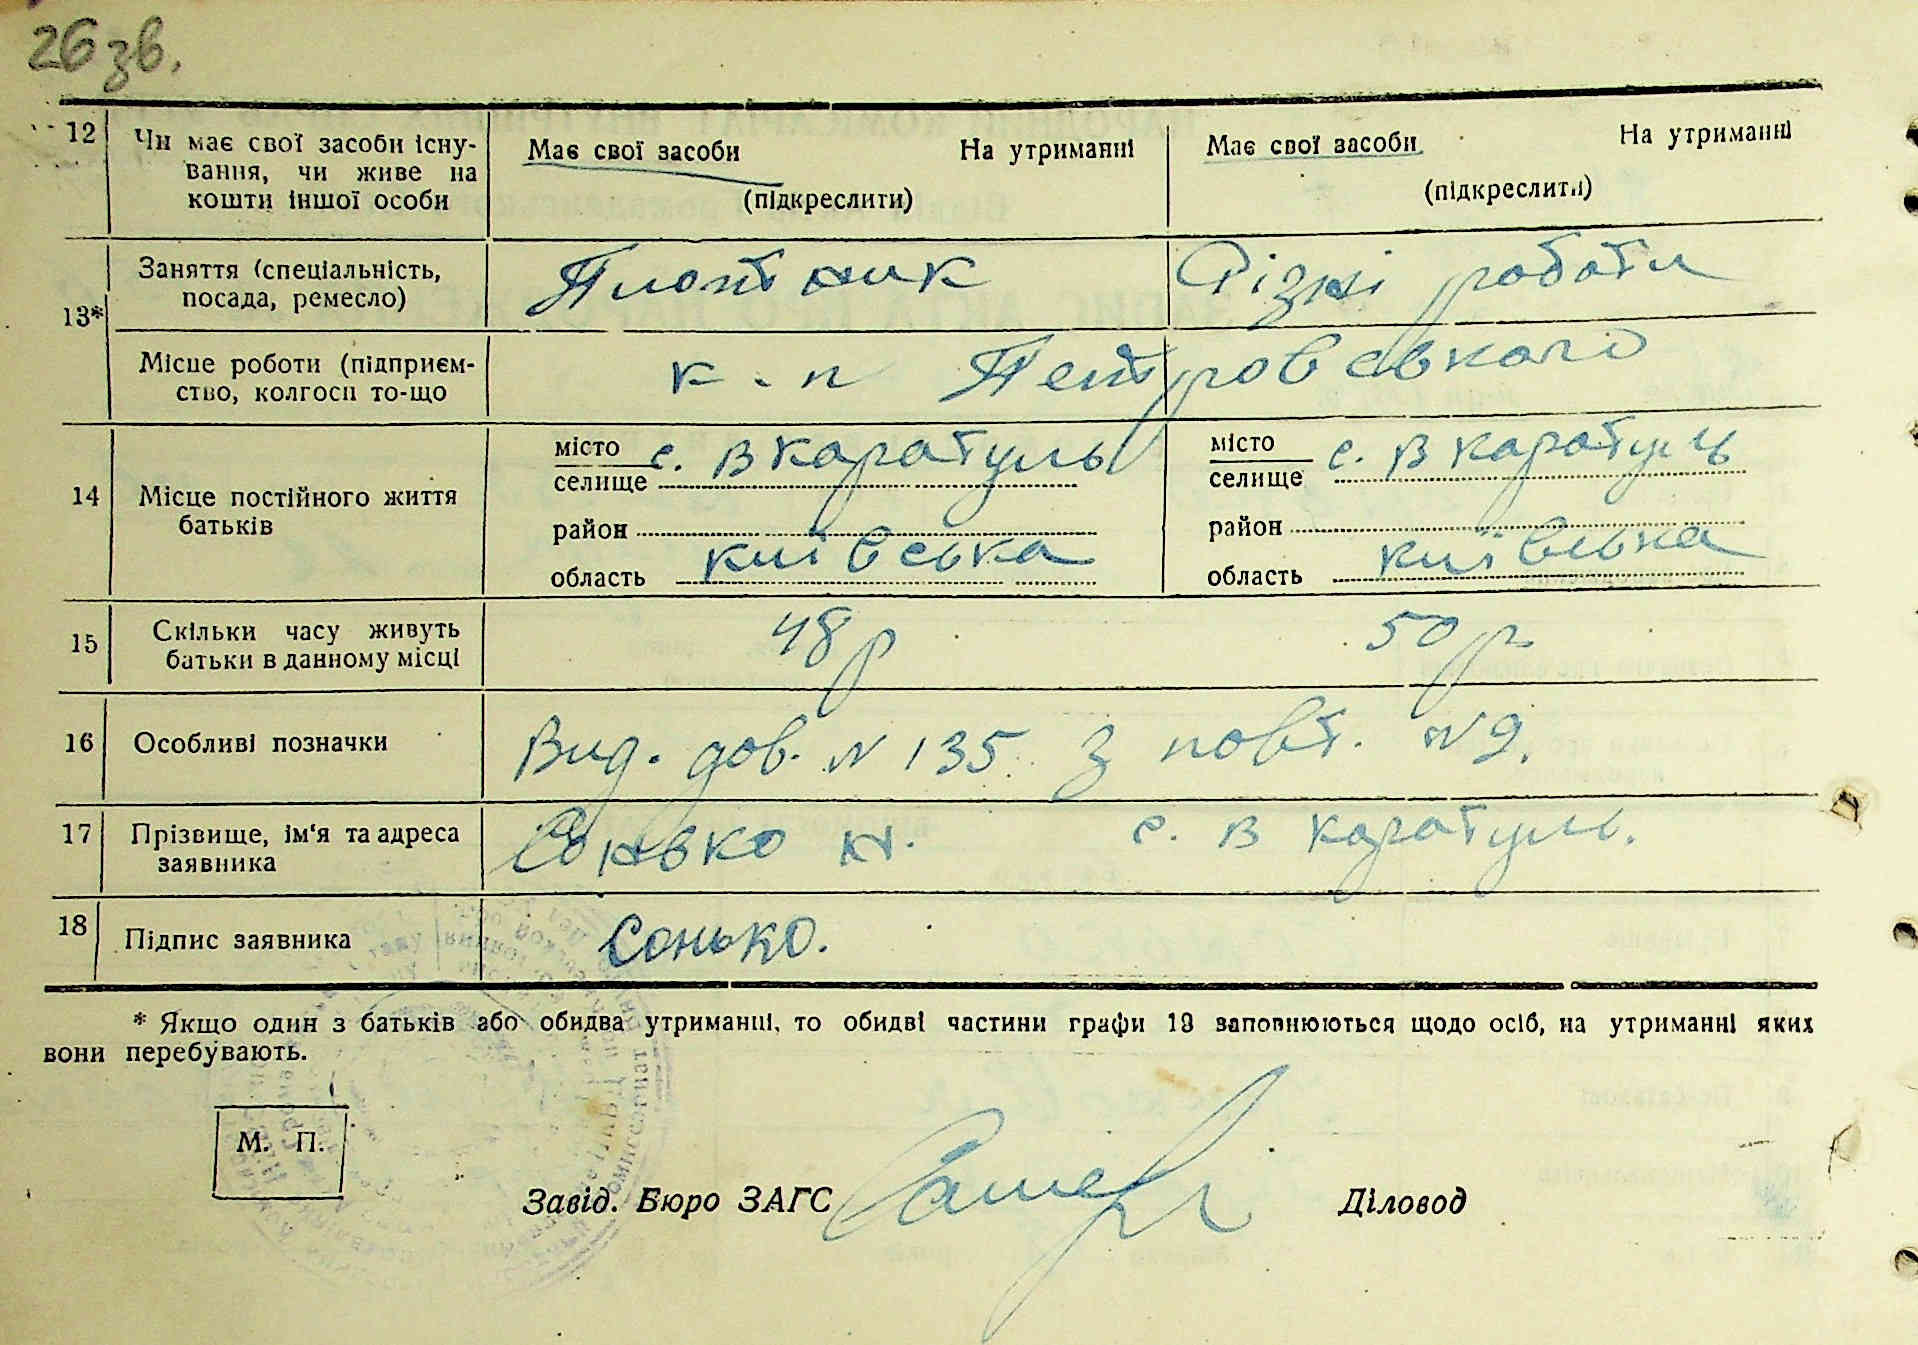 26 зв.
12 Чи має свої засоби існу- Має свої засоби На утриманні Має свої засоби На утриманні
вання, чи живе на
кошти іншої особи (підкреслити) (підкреслити)
Заняття (спеціальність, Плотник Різні роботи
посада, ремесло)
13*
Місце роботи (підприєм- к-п Петровського
ство, колгосп то-що
місто с. В каратуль місто с. В каратуль
селище селище
14 Місце постійного життя
батьків район район
область київська область київська
15 Скільки часу живуть 48 р 50 р
батьки в данному місці
16 Особливі позначки Вид. дов. N 135 з повт. N 9.
17 Прізвище, ім'я та адреса Сонько Н. с. В каратуль.
заявника
18 Підпис заявника Сонько.
* Якщо один з батьків або обидва утриманці, то обидві частини графи 13 заповнюються щодо осіб, на утриманні яких
вони перебувають.
М. П.
Завід. Бюро ЗАГС Діловод